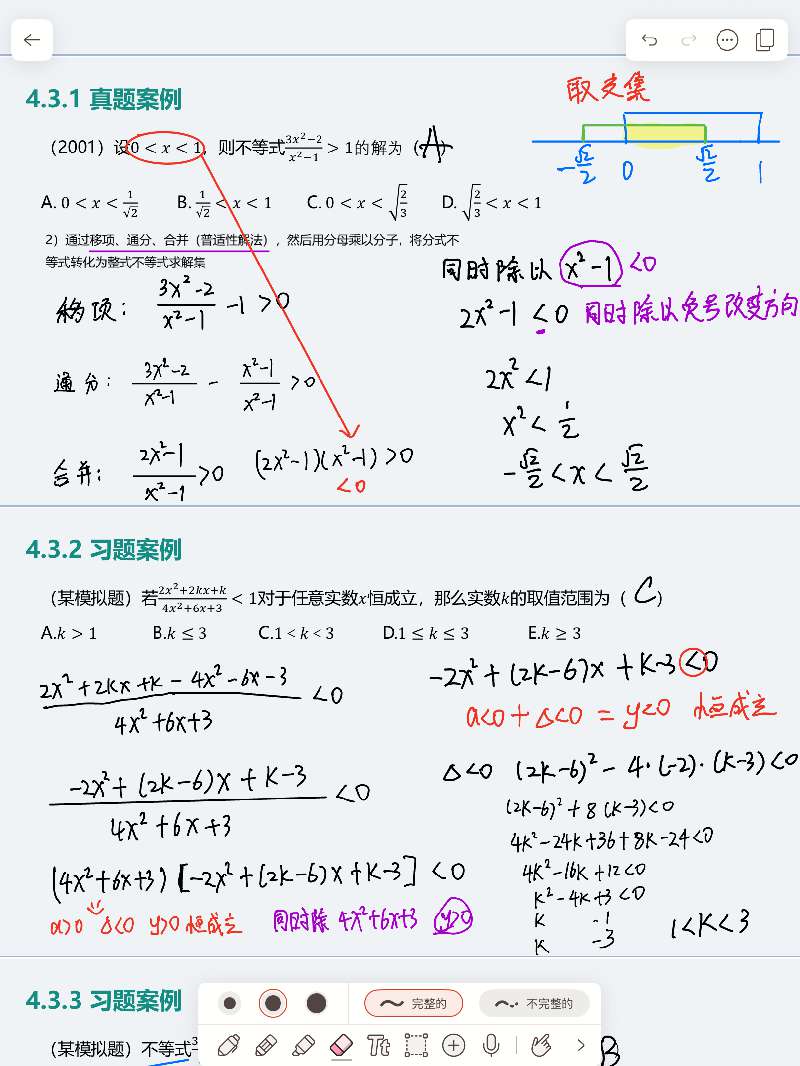 4.3.1 真题案例
取交集
(2001) 设0 < x < 1, 则不等式\frac{3x²−2}{x²−1} > 1的解为 ( A )
−\frac{√2}{2} 0 \frac{√2}{2} 1
A. 0 < x < \frac{1}{√2} B. \frac{1}{√2} < x < 1 C. 0 < x < \sqrt{\frac{2}{3}} D. \sqrt{\frac{2}{3}} < x < 1
2) 通过移项、通分、合并(普适性解法), 然后用分母乘以分子, 将分式不
等式转化为整式不等式求解集
移项: \frac{3x²-2}{x²-1} -1 >0
通分: \frac{3x²-2}{x²-1} - \frac{x²-1}{x²-1} >0
合并: \frac{2x²-1}{x²-1} >0 (2x²-1)(x²-1) >0
<0
同时除以 x²-1 <0
2x²-1 <0 同时除以负号改变方向
2x² <1
x² < \frac{1}{2}
-\frac{√2}{2} < x < \frac{√2}{2}
4.3.2 习题案例
(某模拟题) 若\frac{2x²+2kx+k}{4x²+6x+3} < 1对于任意实数x恒成立, 那么实数k的取值范围为 ( C )
A.k > 1 B.k ≤ 3 C.1 < k < 3 D.1 ≤ k ≤ 3 E.k ≥ 3
\frac{2x²+2kx+k-4x²-6x-3}{4x²+6x+3} <0
\frac{-2x²+(2k-6)x+k-3}{4x²+6x+3} <0
(4x²+6x+3) [-2x²+(2k-6)x+k-3] <0
a>0 Δ<0 y>0 恒成立 同时除 4x²+6x+3 y>0
-2x²+(2k-6)x+k-3 <0
a<0 + Δ<0 = y<0 恒成立
Δ<0 (2k-6)²-4·(-2)·(k-3) <0
(2k-6)²+8(k-3)<0
4k²-24k+36+8k-24<0
4k²-16k+12<0
k²-4k+3<0
k -1
k -3
1<k<3
4.3.3 习题案例
完整的 不完整的
(某模拟题) 不等式
B
Tt